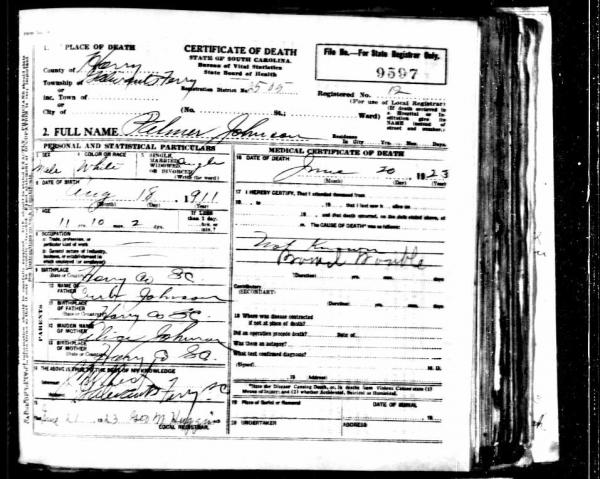 1. PLACE OF DEATH
County of Horry
Township of Ferry
or
inc. Town of
or
City of (No. St.; Ward)
CERTIFICATE OF DEATH
STATE OF SOUTH CAROLINA
Bureau of Vital Statistics
State Board of Health
Registration District No. 2505
File No.—For State Registrar Only.
9597
Registered No. 12
(For use of Local Registrar)
(If death occurred in a Hospital or Institution give its NAME instead of street and number.)
2. FULL NAME Johnson
Residence
In City Yrs. Mos. Days.
PERSONAL AND STATISTICAL PARTICULARS
3 SEX
Male
4 COLOR OR RACE
White
5 SINGLE, MARRIED, WIDOWED, OR DIVORCED
(Write the word)
Single
6 DATE OF BIRTH
Aug 18, 1911
(Month) (Day) (Year)
7 AGE
11 yrs. 10 mos. 2 dys.
If LESS than 1 day,
hrs. or min.?
8 OCCUPATION
(a) Trade, profession, or particular kind of work
(b) General nature of industry, business, or establishment in which employed (or employer)
9 BIRTHPLACE
(State or Country) Horry Co SC
PARENTS
10 NAME OF FATHER Johnson
11 BIRTHPLACE OF FATHER
(State or Country) Horry Co SC
12 MAIDEN NAME OF MOTHER Johnson
13 BIRTHPLACE OF MOTHER
(State or Country) Horry Co SC
14 THE ABOVE IS TRUE TO THE BEST OF MY KNOWLEDGE
Informant
Address Ferry SC
15
21 1923 Geo M
LOCAL REGISTRAR.
MEDICAL CERTIFICATE OF DEATH
16 DATE OF DEATH June 20 1923
(Month) (Day) (Year)
17 I HEREBY CERTIFY, That I attended deceased from
19 , to 19 , that I last saw h alive on
19 , and that death occurred, on the date stated above, at
m. The CAUSE OF DEATH* was as follows:
Not Known
Bowel Trouble
(Duration) yrs. mos. days
Contributory
(SECONDARY)
(Duration) yrs. mos. days
18 Where was disease contracted
if not at place of death?
Did an operation precede death? Date of
Was there an autopsy?
What test confirmed diagnosis?
(Signed) M. D.
19 (Address)
*State the Disease Causing Death, or, in deaths from Violent Causes state (1) Means of Injury; and (2) whether Accidental, Suicidal or Homicidal.
19 Place of Burial or Removal DATE OF BURIAL
19
20 UNDERTAKER ADDRESS